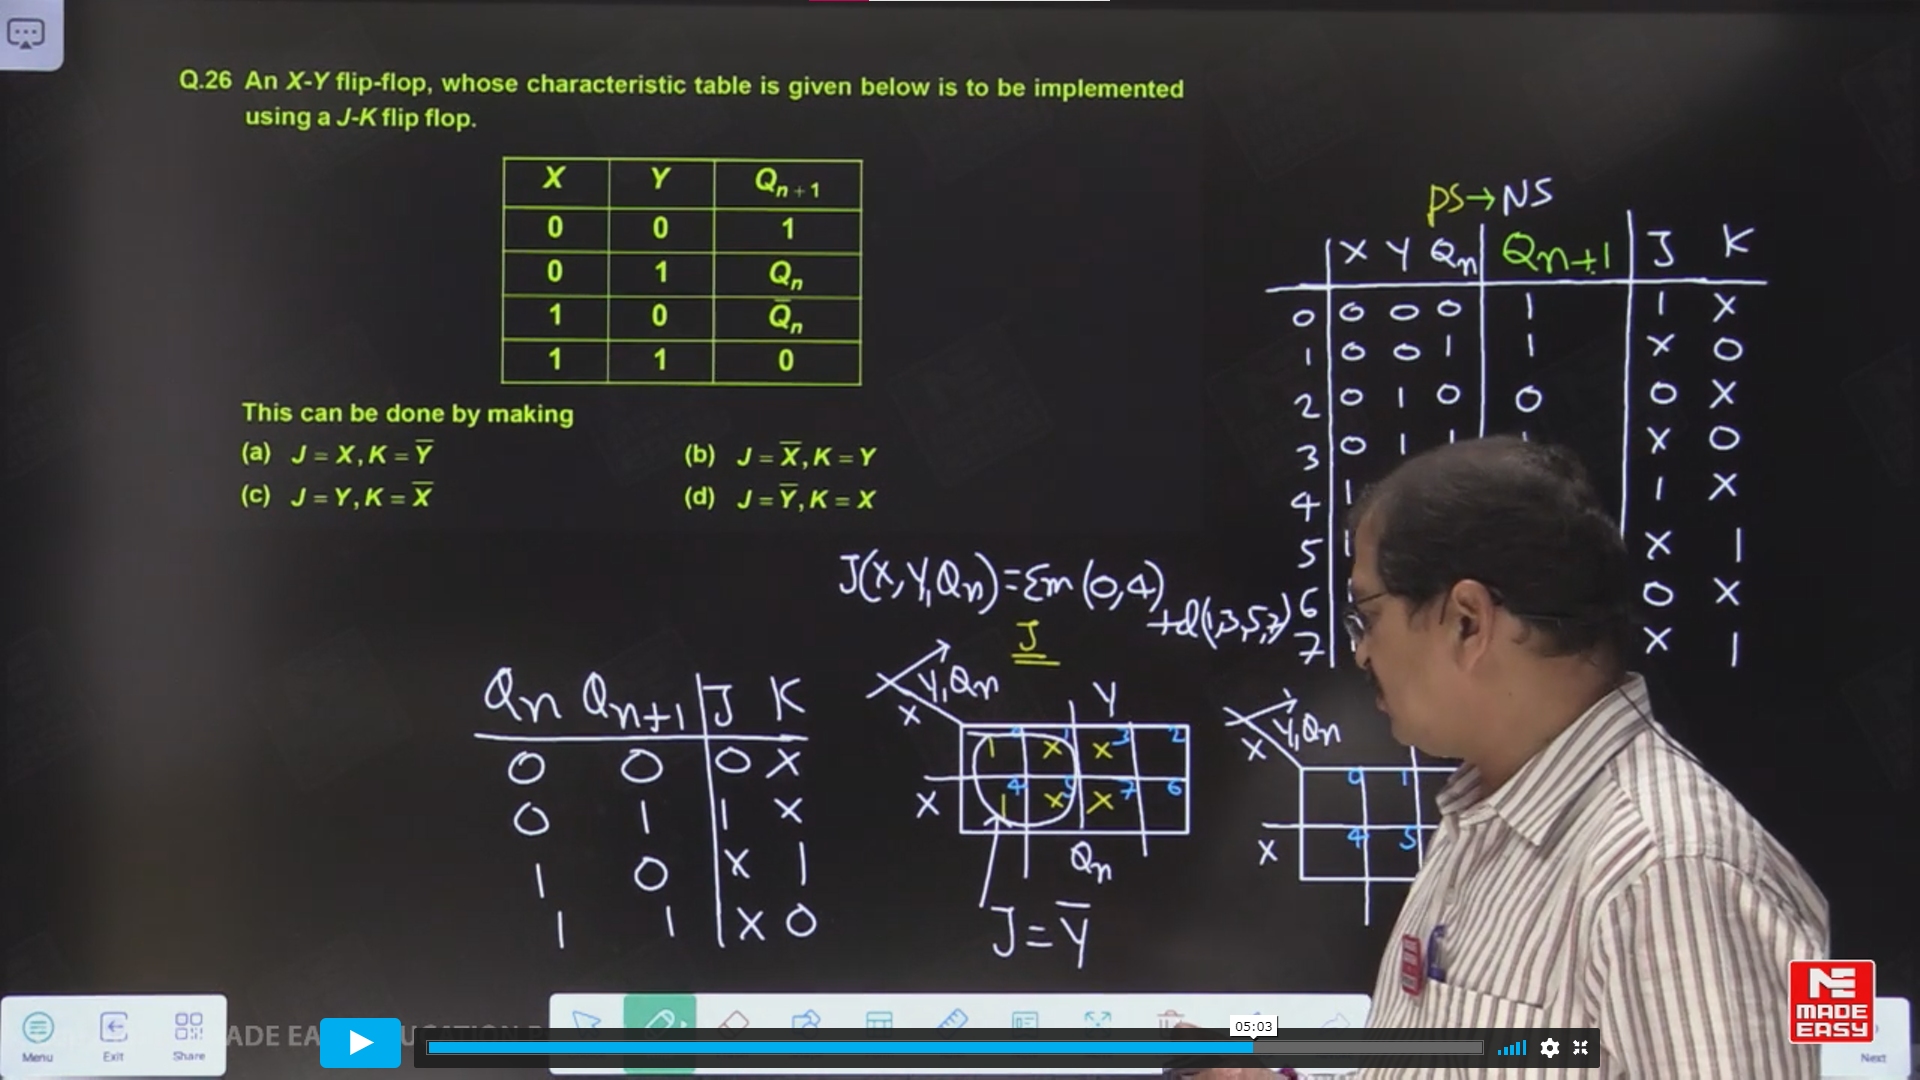 Q.26 An X-Y flip-flop, whose characteristic table is given below is to be implemented
using a J-K flip flop.
X Y Qn+1
0 0 1
0 1 Qn
1 0 Q̅n
1 1 0
This can be done by making
(a) J = X, K = Y̅
(b) J = X̅, K = Y
(c) J = Y, K = X̅
(d) J = Y̅, K = X
PS→NS
X Y Qn Qn+1 J K
0 0 0 0 1 1 X
1 0 0 1 1 X 0
2 0 1 0 0 0 X
3 0 1 1 X 0
4 1 1 X
5 1 X 1
6 0 X
7 X 1
J(X,Y,Qn)=Σm(0,4)
+d(1,3,5,7)
J
Qn Qn+1 J K
0 0 0 X
0 1 1 X
1 0 X 1
1 1 X 0
Y,Qn
X
Y
1 0 X 1 X 3 2
X
1 4 X 5 X 7 6
Qn
J=Y̅
Y,Qn
X
0 1
X
4 5
Menu
Exit
Share
05:03
MADE
EASY
Next